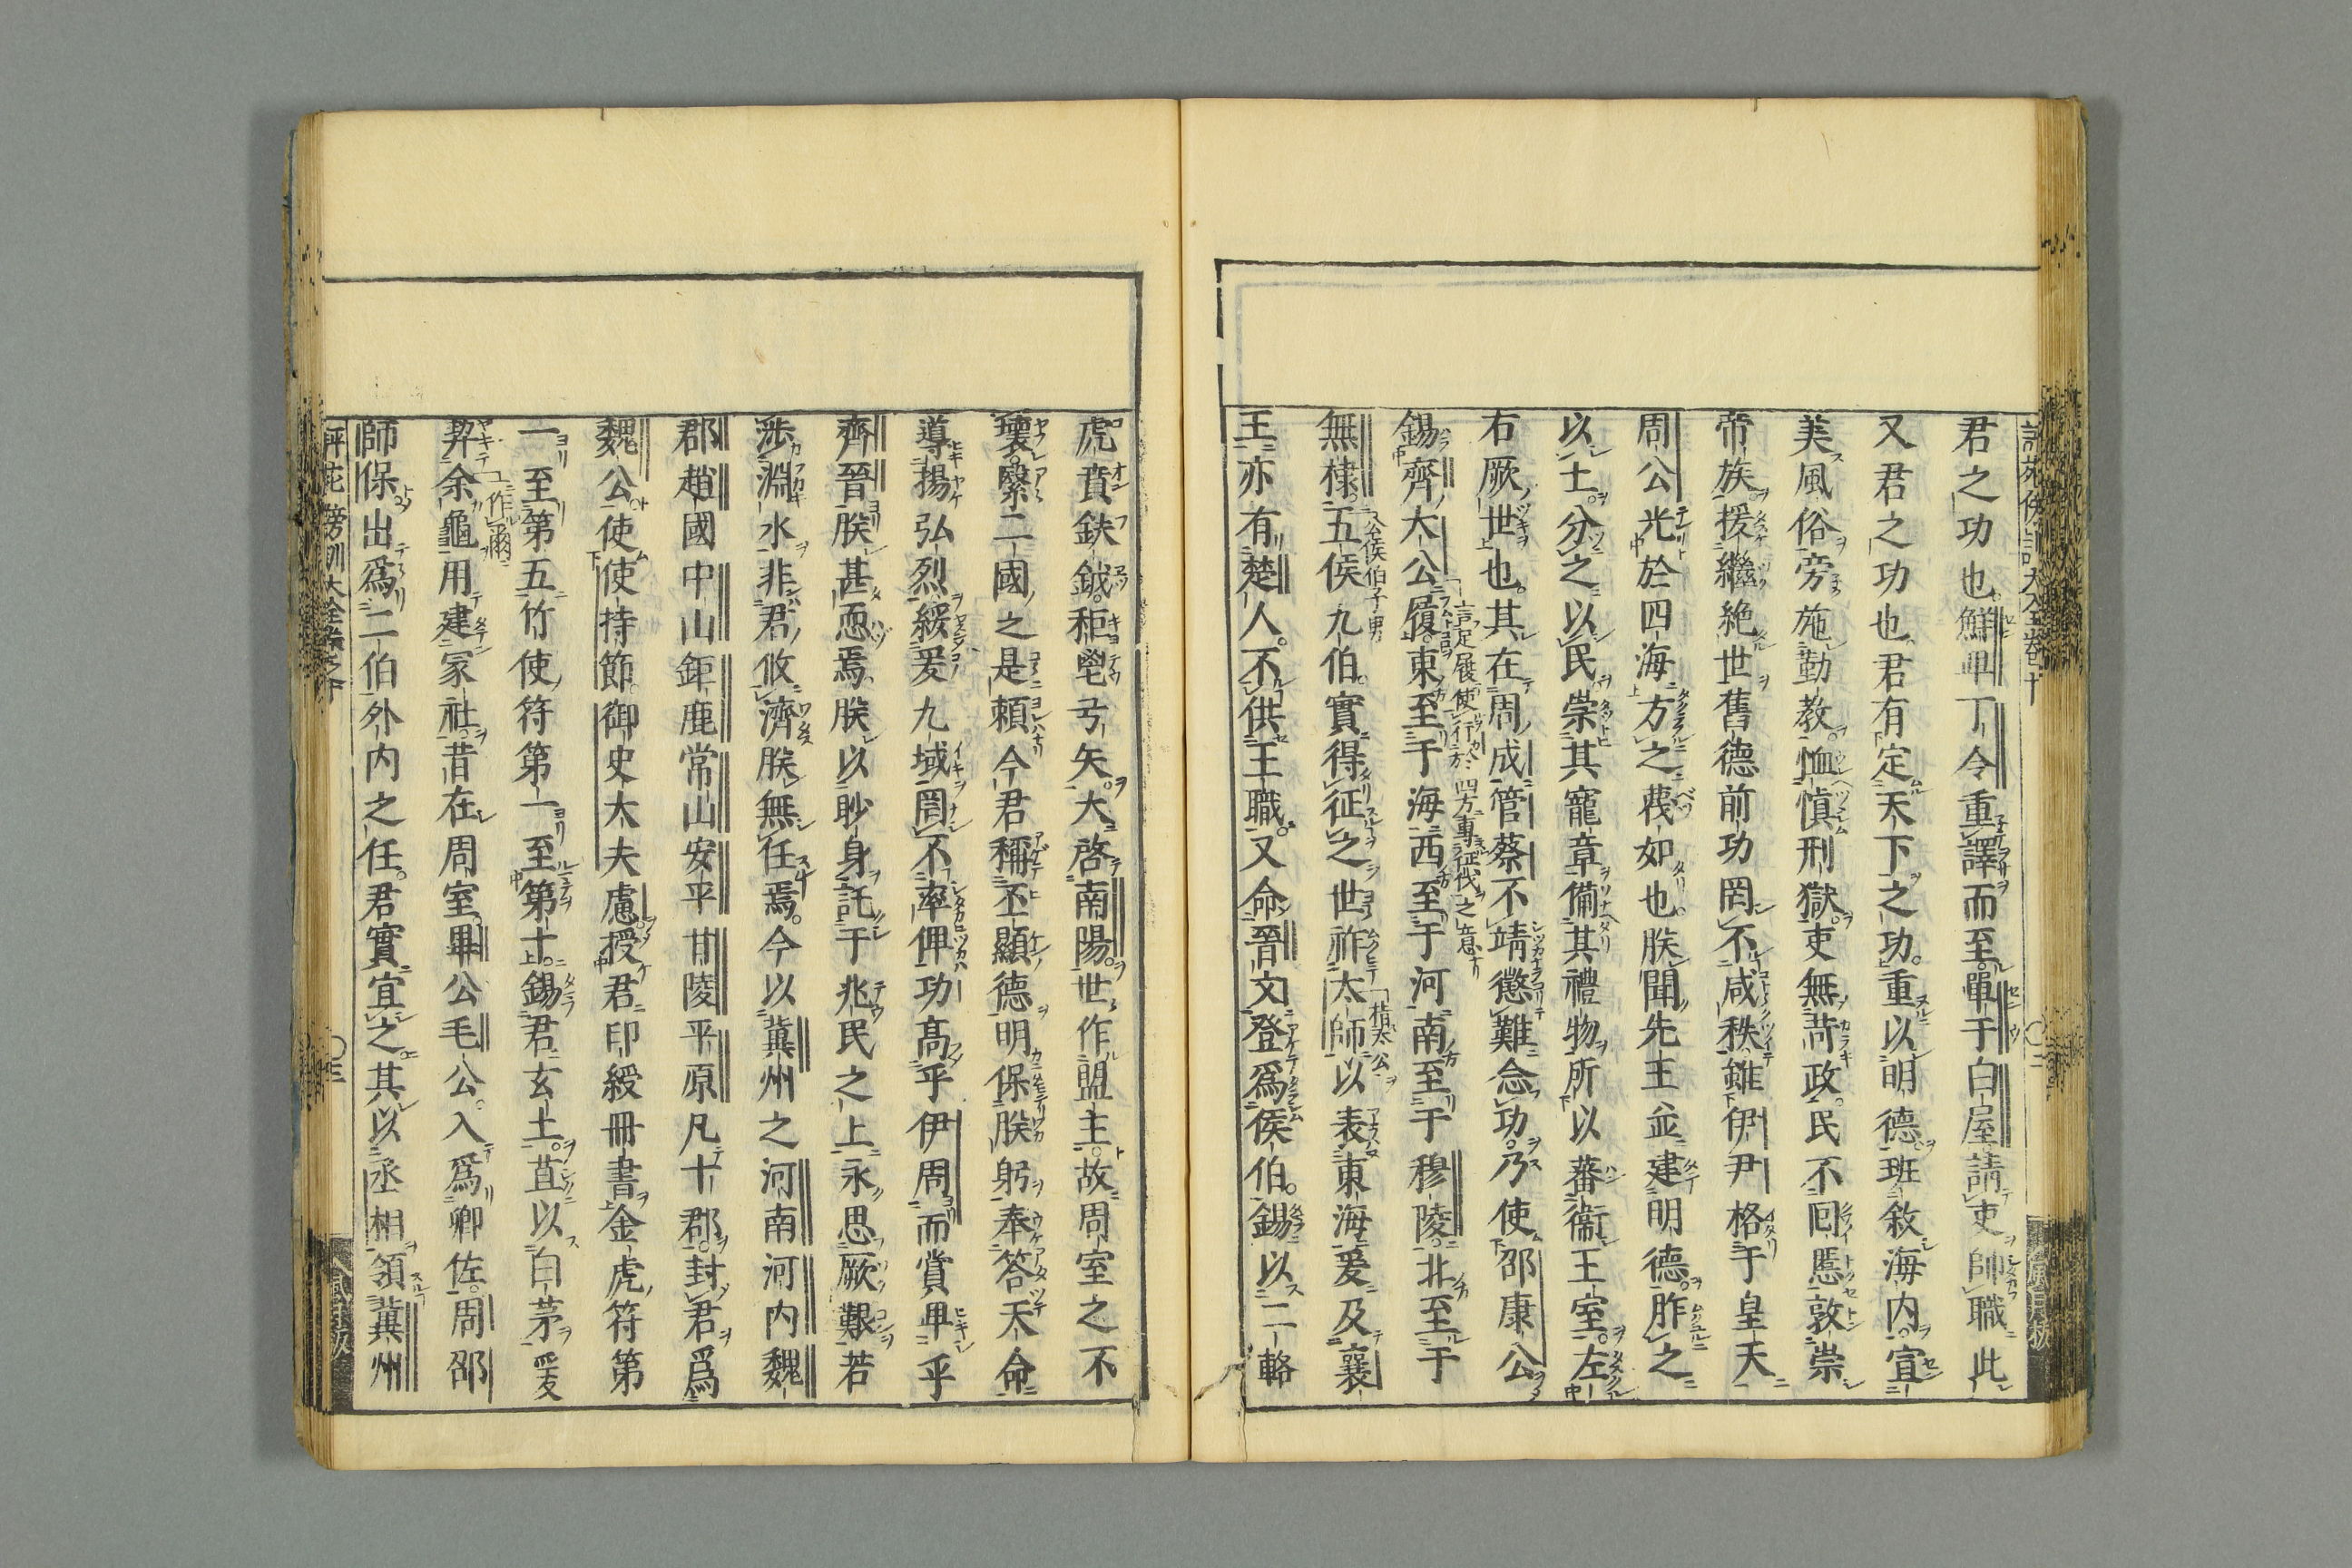 君之功也鮮卑丁令重譯而至單于白屋請吏帥職此
又君之功也君有定天下之功重以明德班敘海內宣
美風俗旁施勤教恤慎刑獄吏無苛政民不回慝敦崇
帝族援繼絶世舊德前功罔不咸秩雖伊尹格于皇天
周公光於四海方之蔑如也朕聞先王並建明德胙之
以土分之以民崇其寵章備其禮物所以蕃衞王室左
右厥世也其在周成管蔡不靖懲難念功乃使邵康公
言足履使行於四方專征伐之意
錫齊太公履東至于海西至于河南至于穆陵北至于
公侯伯子男
指太公
無棣五侯九伯實得征之世祚太師以表東海爰及襄
王亦有楚人不供王職又命晉文登爲侯伯錫以二輅
虎賁鈇鉞秬鬯弓矢大啓南陽世作盟主故周室之不
壞繄二國之是頼今君稱丕顯德明保朕躬奉答天命
導揚弘烈綏爰九域罔不率俾功髙乎伊周而賞卑乎
齊晉朕甚恧焉朕以眇身託于兆民之上永思厥艱若
渉淵水非君攸濟朕無任焉今以冀州之河南河内魏
郡趙國中山鉅鹿常山安平甘陵平原凡十郡封君爲
魏公使使持節御史大夫慮授君印綬冊書金虎符第
一至第五竹使符第一至第十錫君玄土苴以白茅爰
一作爾
契余龜用建冢社昔在周室畢公毛公入爲卿佐周邵
師保出爲二伯外内之任君實宜之其以丞相領冀州